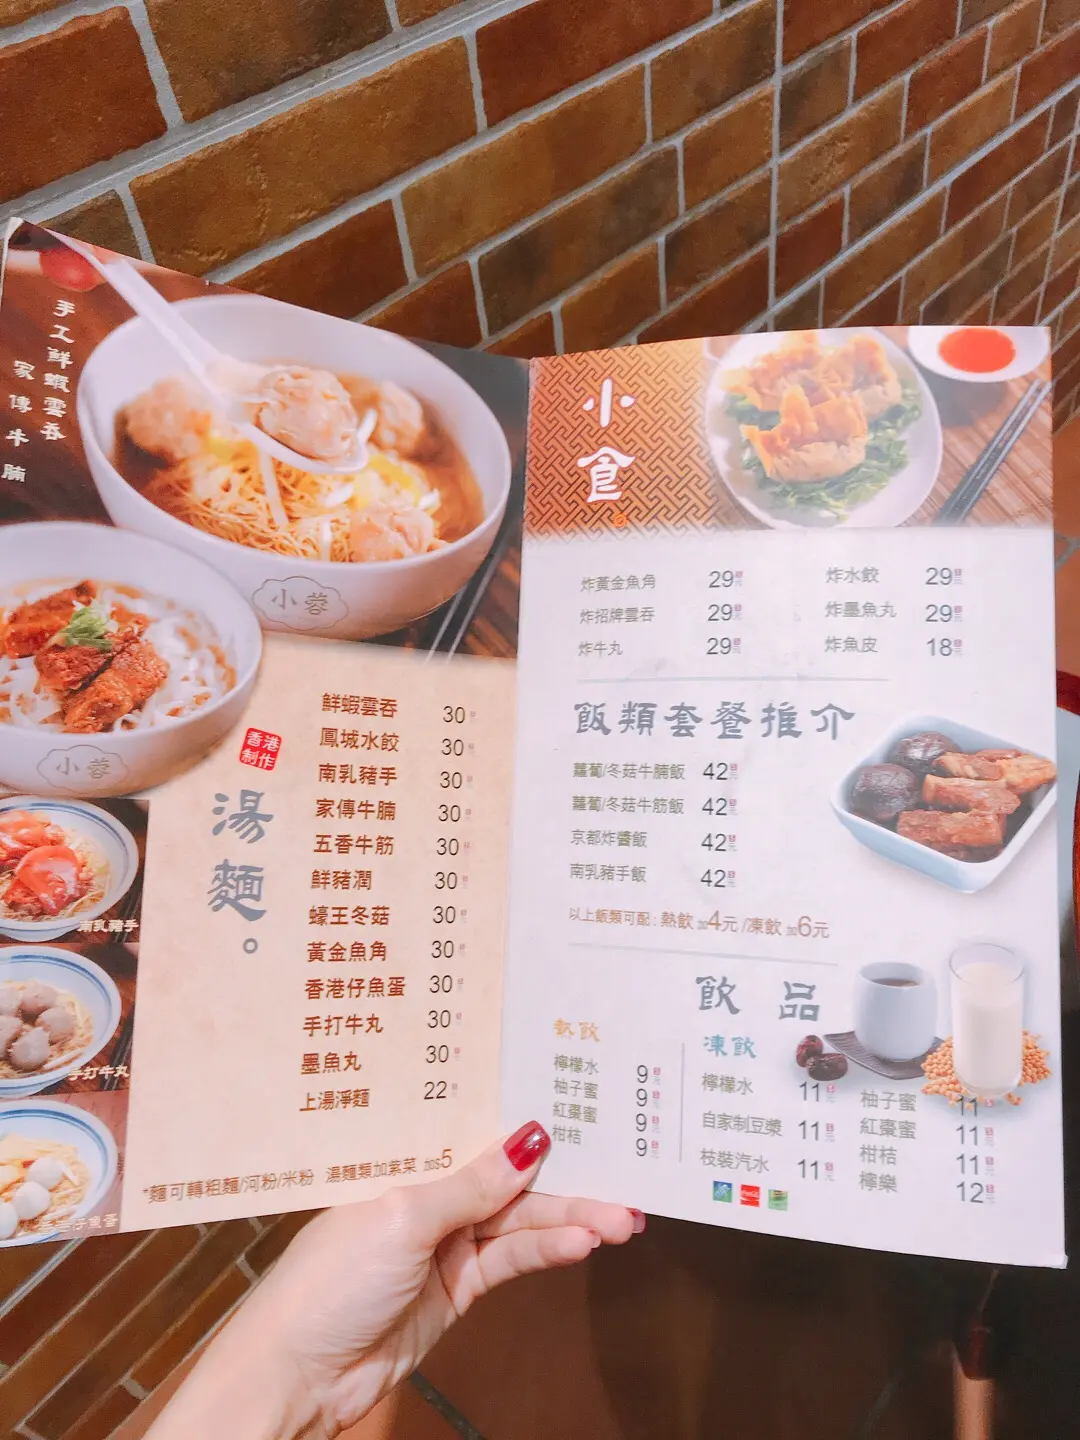 手工鮮蝦雲吞
家傳牛腩
小蓉
小蓉
南乳豬手
手打牛丸
香港仔魚蛋
香港制作
湯麵。
鮮蝦雲吞 30
鳳城水餃 30
南乳豬手 30
家傳牛腩 30
五香牛筋 30
鮮豬潤 30
蠔王冬菇 30
黃金魚角 30
香港仔魚蛋 30
手打牛丸 30
墨魚丸 30
上湯淨麵 22
*麵可轉粗麵/河粉/米粉 湯麵類加紫菜 加$5
小食
炸黃金魚角 29元
炸招牌雲吞 29元
炸牛丸 29元
炸水餃 29元
炸墨魚丸 29元
炸魚皮 18元
飯類套餐推介
蘿蔔/冬菇牛腩飯 42元
蘿蔔/冬菇牛筋飯 42元
京都炸醬飯 42元
南乳豬手飯 42元
以上飯類可配:熱飲加4元/凍飲加6元
飲品
熱飲
檸檬水 9元
柚子蜜 9元
紅棗蜜 9元
柑桔 9元
凍飲
檸檬水 11元
自家制豆漿 11元
枝裝汽水 11元
柚子蜜 11
紅棗蜜 11元
柑桔 11元
檸樂 12元